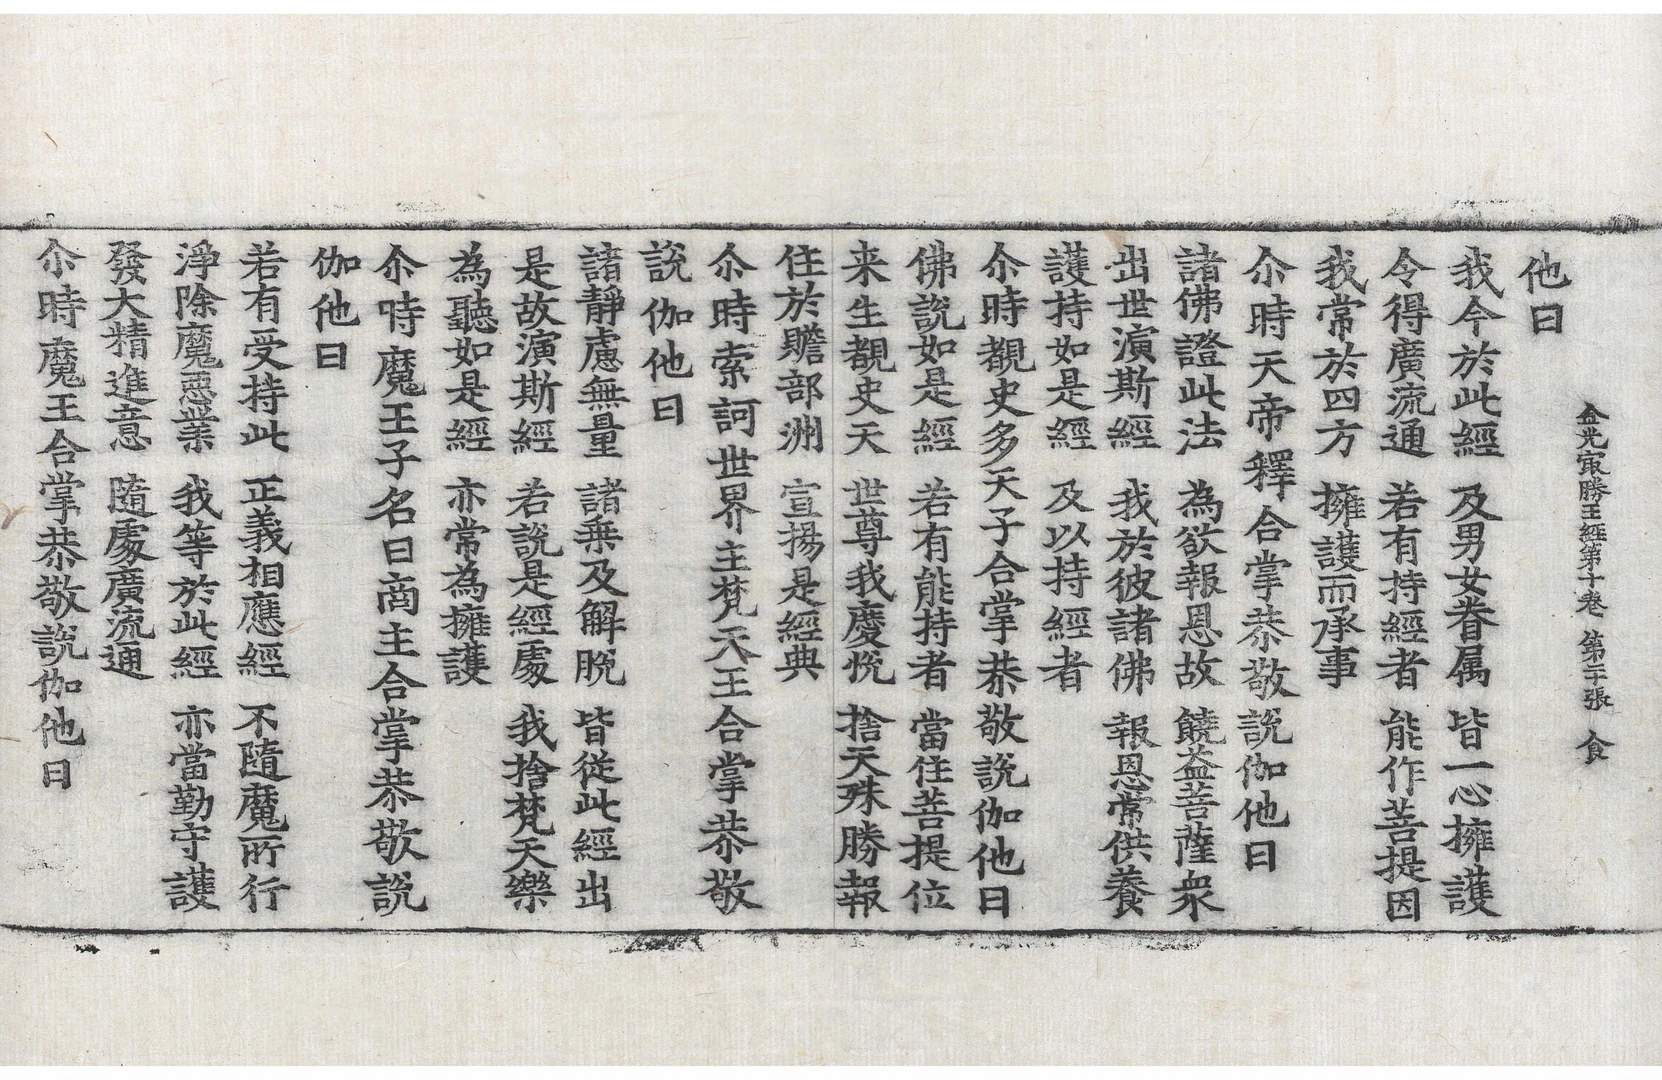 金光㝡勝王經第十卷　第二十張　食
他曰
我今於此經　及男女眷属　皆一心擁護
令得廣流通　若有持經者　能作菩提因
我常於四方　擁護而承事
尒時天帝釋合掌恭敬說伽他曰
諸佛證此法　為欲報恩故　饒益菩薩衆
出世演斯經　我於彼諸佛　報恩常供養
護持如是經　及以持經者
尒時覩史多天子合掌恭敬說伽他曰
佛說如是經　若有能持者　當住菩提位
来生覩史天　世尊我慶悅　捨天殊勝報
住於贍部洲　宣揚是經典
尒時索訶世界主梵天王合掌恭敬
說伽他曰
諸靜慮無量　諸乗及解脫　皆從此經出
是故演斯經　若說是經處　我捨梵天樂
為聽如是經　亦常為擁護
尒時魔王子名曰商主合掌恭敬說
伽他曰
若有受持此　正義相應經　不隨魔所行
淨除魔惡業　我等於此經　亦當勤守護
發大精進意　隨處廣流通
尒時魔王合掌恭敬說伽他曰